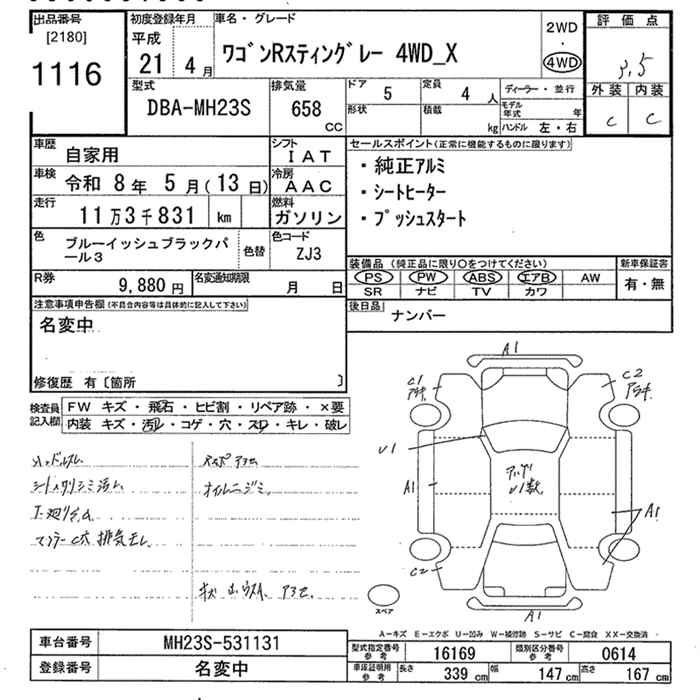 出品番号 初度登録年月 車名・グレード 評価点
[2180] 平成 2WD
1116 21年 4月 ワゴンRスティングレー 4WD_X ・ 4WD
3.5
型式 排気量 ドア 定員 ディーラー・並行 外装 内装
DBA-MH23S 658 cc 5 4人 モデル年式 年 C C
形状 積載 kg ハンドル 左・右
車歴 自家用 シフト IAT セールスポイント(正常に機能するものに限ります)
車検 令和 8年 5月(13日) 冷房 AAC ・純正アルミ
走行 11万3千831 km 燃料 ガソリン ・シートヒーター
・プッシュスタート
色 ブルーイッシュブラックパール3 色替 色コード ZJ3
装備品(純正品に限り○をつけてください) 新車保証書
PS PW ABS エアB AW 有・無
SR ナビ TV カワ
R券 9,880円 名変通知期限 月 日
後日品 ナンバー
注意事項申告欄(不具合内容等は具体的に記入して下さい)
名変中
修復歴 有〔箇所 〕
検査員記入欄 FW キズ・飛石・ヒビ割・リペア跡・×要
内装 キズ・汚れ・コゲ・穴・スレ・キレ・破レ
A1
C1 C2
U1
A1 A1
C2
A1
スペア
A-キズ E-エクボ U-凹み W-補修跡 S-サビ C-腐食 XX-交換済
車台番号 MH23S-531131 型式指定番号 参考 16169 類別区分番号 参考 0614
登録番号 名変中 車庫証明用 参考 長さ 339cm 幅 147cm 高さ 167cm